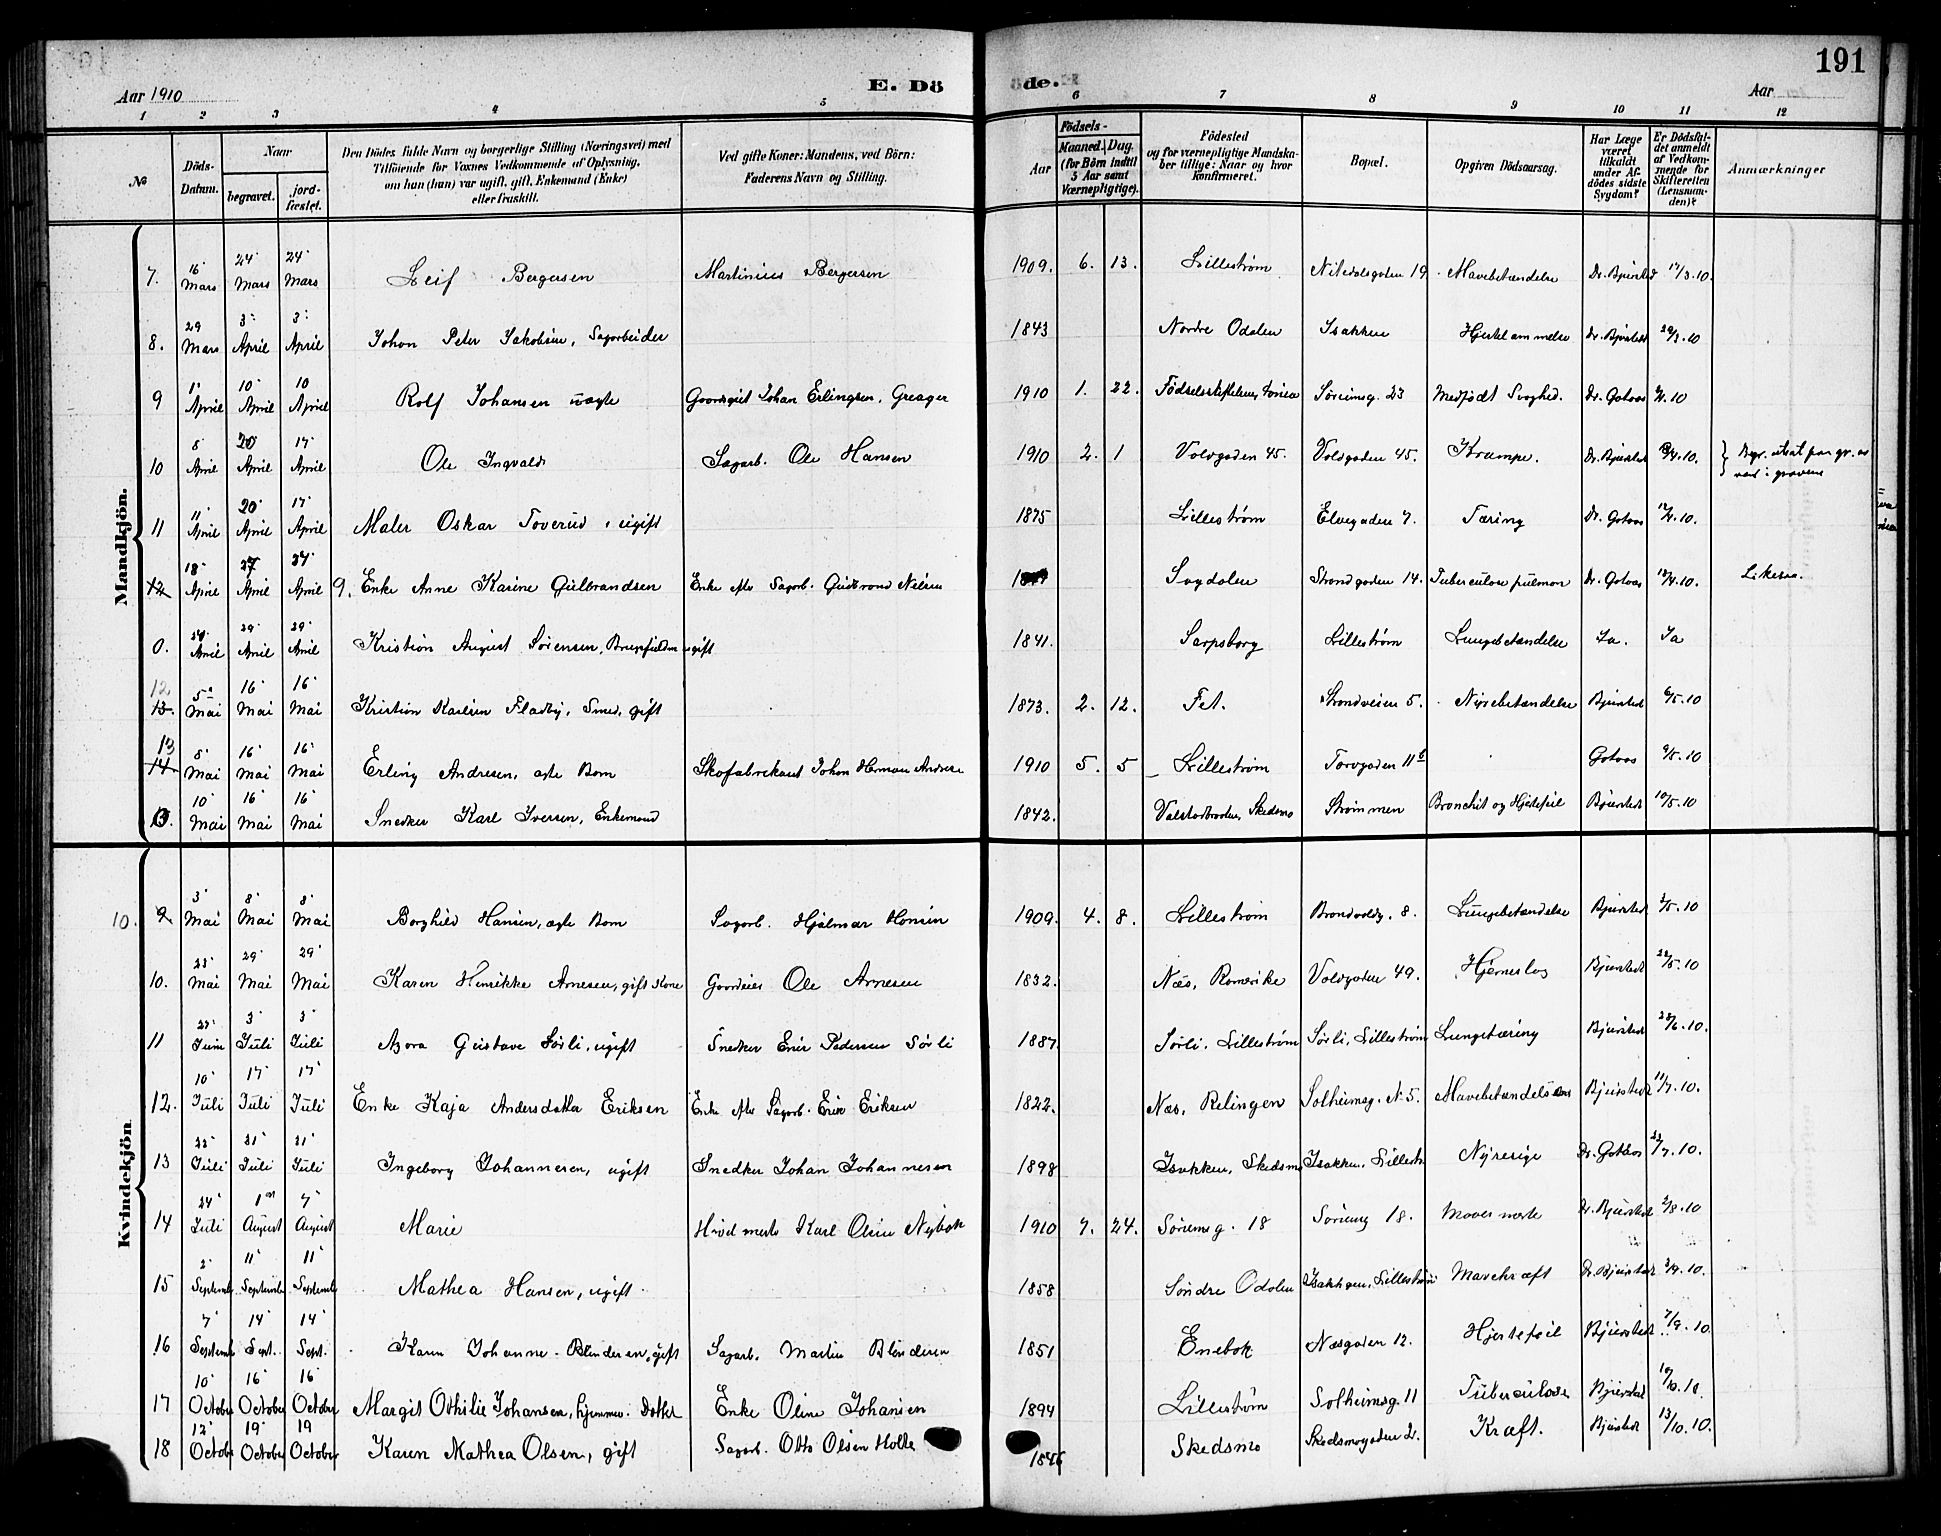 191
Aar 1910 E. Dö de. Aar
1 2 3 4 5 6 7 8 9 10 11 12
№
Döds-Datum.
Naar
begravet.
jord-fæstet.
Den Dödes fulde Navn og borgerlige Stilling (Næringsvei) med
Tilföiende for Voxnes Vedkommende af Oplysning,
om han (hun) var ugift, gift, Enkemand (Enke)
eller fraskilt.
Ved gifte Koner: Mandens, ved Börn:
Faderens Navn og Stilling.
Födsels-
Aar
Maaned. Dag.
(for Börn indtil
5 Aar samt
Værnepligtige).
Födested
og for værnepligtige Mandska-
ber tillige: Naar og hvor
konfirmeret.
Bopæl.
Opgiven Dödsaarsag.
Har Læge
været
tilkaldt
under Af-
dödes sidste
Sygdom?
Er Dödsfal-
det anmeldt
af Vedkom-
mende for
Skifteretten
(Lensman-
den)?
Anmærkninger
Mandkjön.
7. 16 Mars 24 Mars 24 Mars Leif Bergersen Martinius Bergersen 1909. 6. 13. Lillestrøm Nitedalsgaten 19. Mavebetændelse Dr. Bjørsted 17/3.10.
8. 29 Mars 3 April 3 April Johan Peter Jakobsen, Sagarbeider 1843 Nordre Odalen Isakken Hjertelammelse Dr. Bjørsted 29/3.10
9 1 April 10 April 10 April Rolf Johansen uægte Gaardsgut Johan Erlingsen, Greager 1910 1. 22. Sørumsg. 23 Medfødt Svaghed. Dr. Gotaas
10 8 April 20 April 17 April Ole Ingvald Sagarb. Ole Hansen 1910 2. 1 Voldgaden 45. Voldgaden 45. Krampe. Dr. Bjørsted
11 11 April 20 April 17 April Maler Oskar Toverud, ugift 1875 Lillestrøm Elvegaden 7. Tæring Dr. Gotaas 12/4.10.
12 18 April 27 April 24 April 9. Enke Anne Karine Gulbrandsen Enke efter Sagarb. Gudbrand Nilsen Sagdalen Strandgaden 14. Tuberculose pulmon Dr. Gotaas Likesaa.
0. 24 April 29 April 29 April Kristian August Sørensen, gift 1841. Sarpsborg Lillestrøm Lungebetændelse Ja. Ja
12
13. 5 Mai 16 Mai 16 Mai Kristian Karlsen Fladby, Smed, gift 1873. 2. 12. Fet. Strandveien 5. Nyrebetændelse Bjørsted 6/5.10
13
14 8 Mai 16 Mai 16 Mai Erling Andresen, ægte Barn Skofabrikant Johan Herman Andrese 1910 5. 5 Lillestrøm Torvgaden 11 b Gotaas 9/5.10
0. 10 Mai 16 Mai 16 Mai Snedker Karl Iversen, Enkemand 1842. Skedsmo Strømmen Bronchit og Hjertefeil Bjørsted 10/5.10
Kvindekjön
10. 9 3 Mai 8 Mai 8 Mai Borghild Hansen, ægte Barn Sagarb. Hjalmar Hansen 1909. 4. 8. Lillestrøm Brandvoldg. 8. Lungebetændelse Bjørsted
10. 23 Mai 29 Mai 29 Mai Karen Henrikke Arnesen, gift Kone Gaardeier Ole Arnesen 1832. Næs, Romerike Voldgaden 49. Hjerneslag Bjørsted
11 27 Juni 3 Juli 3 Juli Azora Gustava Sørli, ugift Snedker Enir Pedersen Sørli 1887. Sørli, Lillestrøm Sørli, Lillestrøm Lungetæring Bjørsted 28/6.10.
12. 10 Juli 17 Juli 17 Juli Enke Kaja Andersdatter Eriksen Enke efter Sagarb. Erik Eriksen 1822. Næs, Relingen Solheimsg. N. 5. Mavebetændelse Bjørsted 11/7.10.
13 22 Juli 31 Juli 31 Juli Ingeborg Johannesen, ugift Snedker Johan Johannesen 1898 Isakken, Skedsmo Isakken, Lillestr Nyresyge Dr. Gotaas
14 24 Juli 1 August 7 August Marie Karl Olsen Nybak 1910 7. 24. Sørumsg. 18 Sørumg 18. Dr. Bjørsted
15 2 Septembr 11 Septembr 11 Septembr Mathea Hansen, ugift 1858 Søndre Odalen Isakken, Lillestrøm Mavekræft Dr. Bjørsted
16 7 Septembr 14 Sept. 14 Sept. Karen Johanne Blinderen, gift Sagarb. Martin Blinderen 1851 Enebak Næsgaden 12. Hjertefeil Bjørsted 7/9.10
17 10 October 16 October 16 October Margit Othilie Johansen, hjemmev. Datter Enke Oline Johansen 1894 Lillestrøm Solheimsg. 11 Tuberculose Bjørsted
18 12 October 19 October 19 October Karen Mathea Olsen, gift Sagarb. Otto Olsen Holte 1846 Skedsmo Skedsmogaden 2. Kræft. Bjørsted 13/10.10.